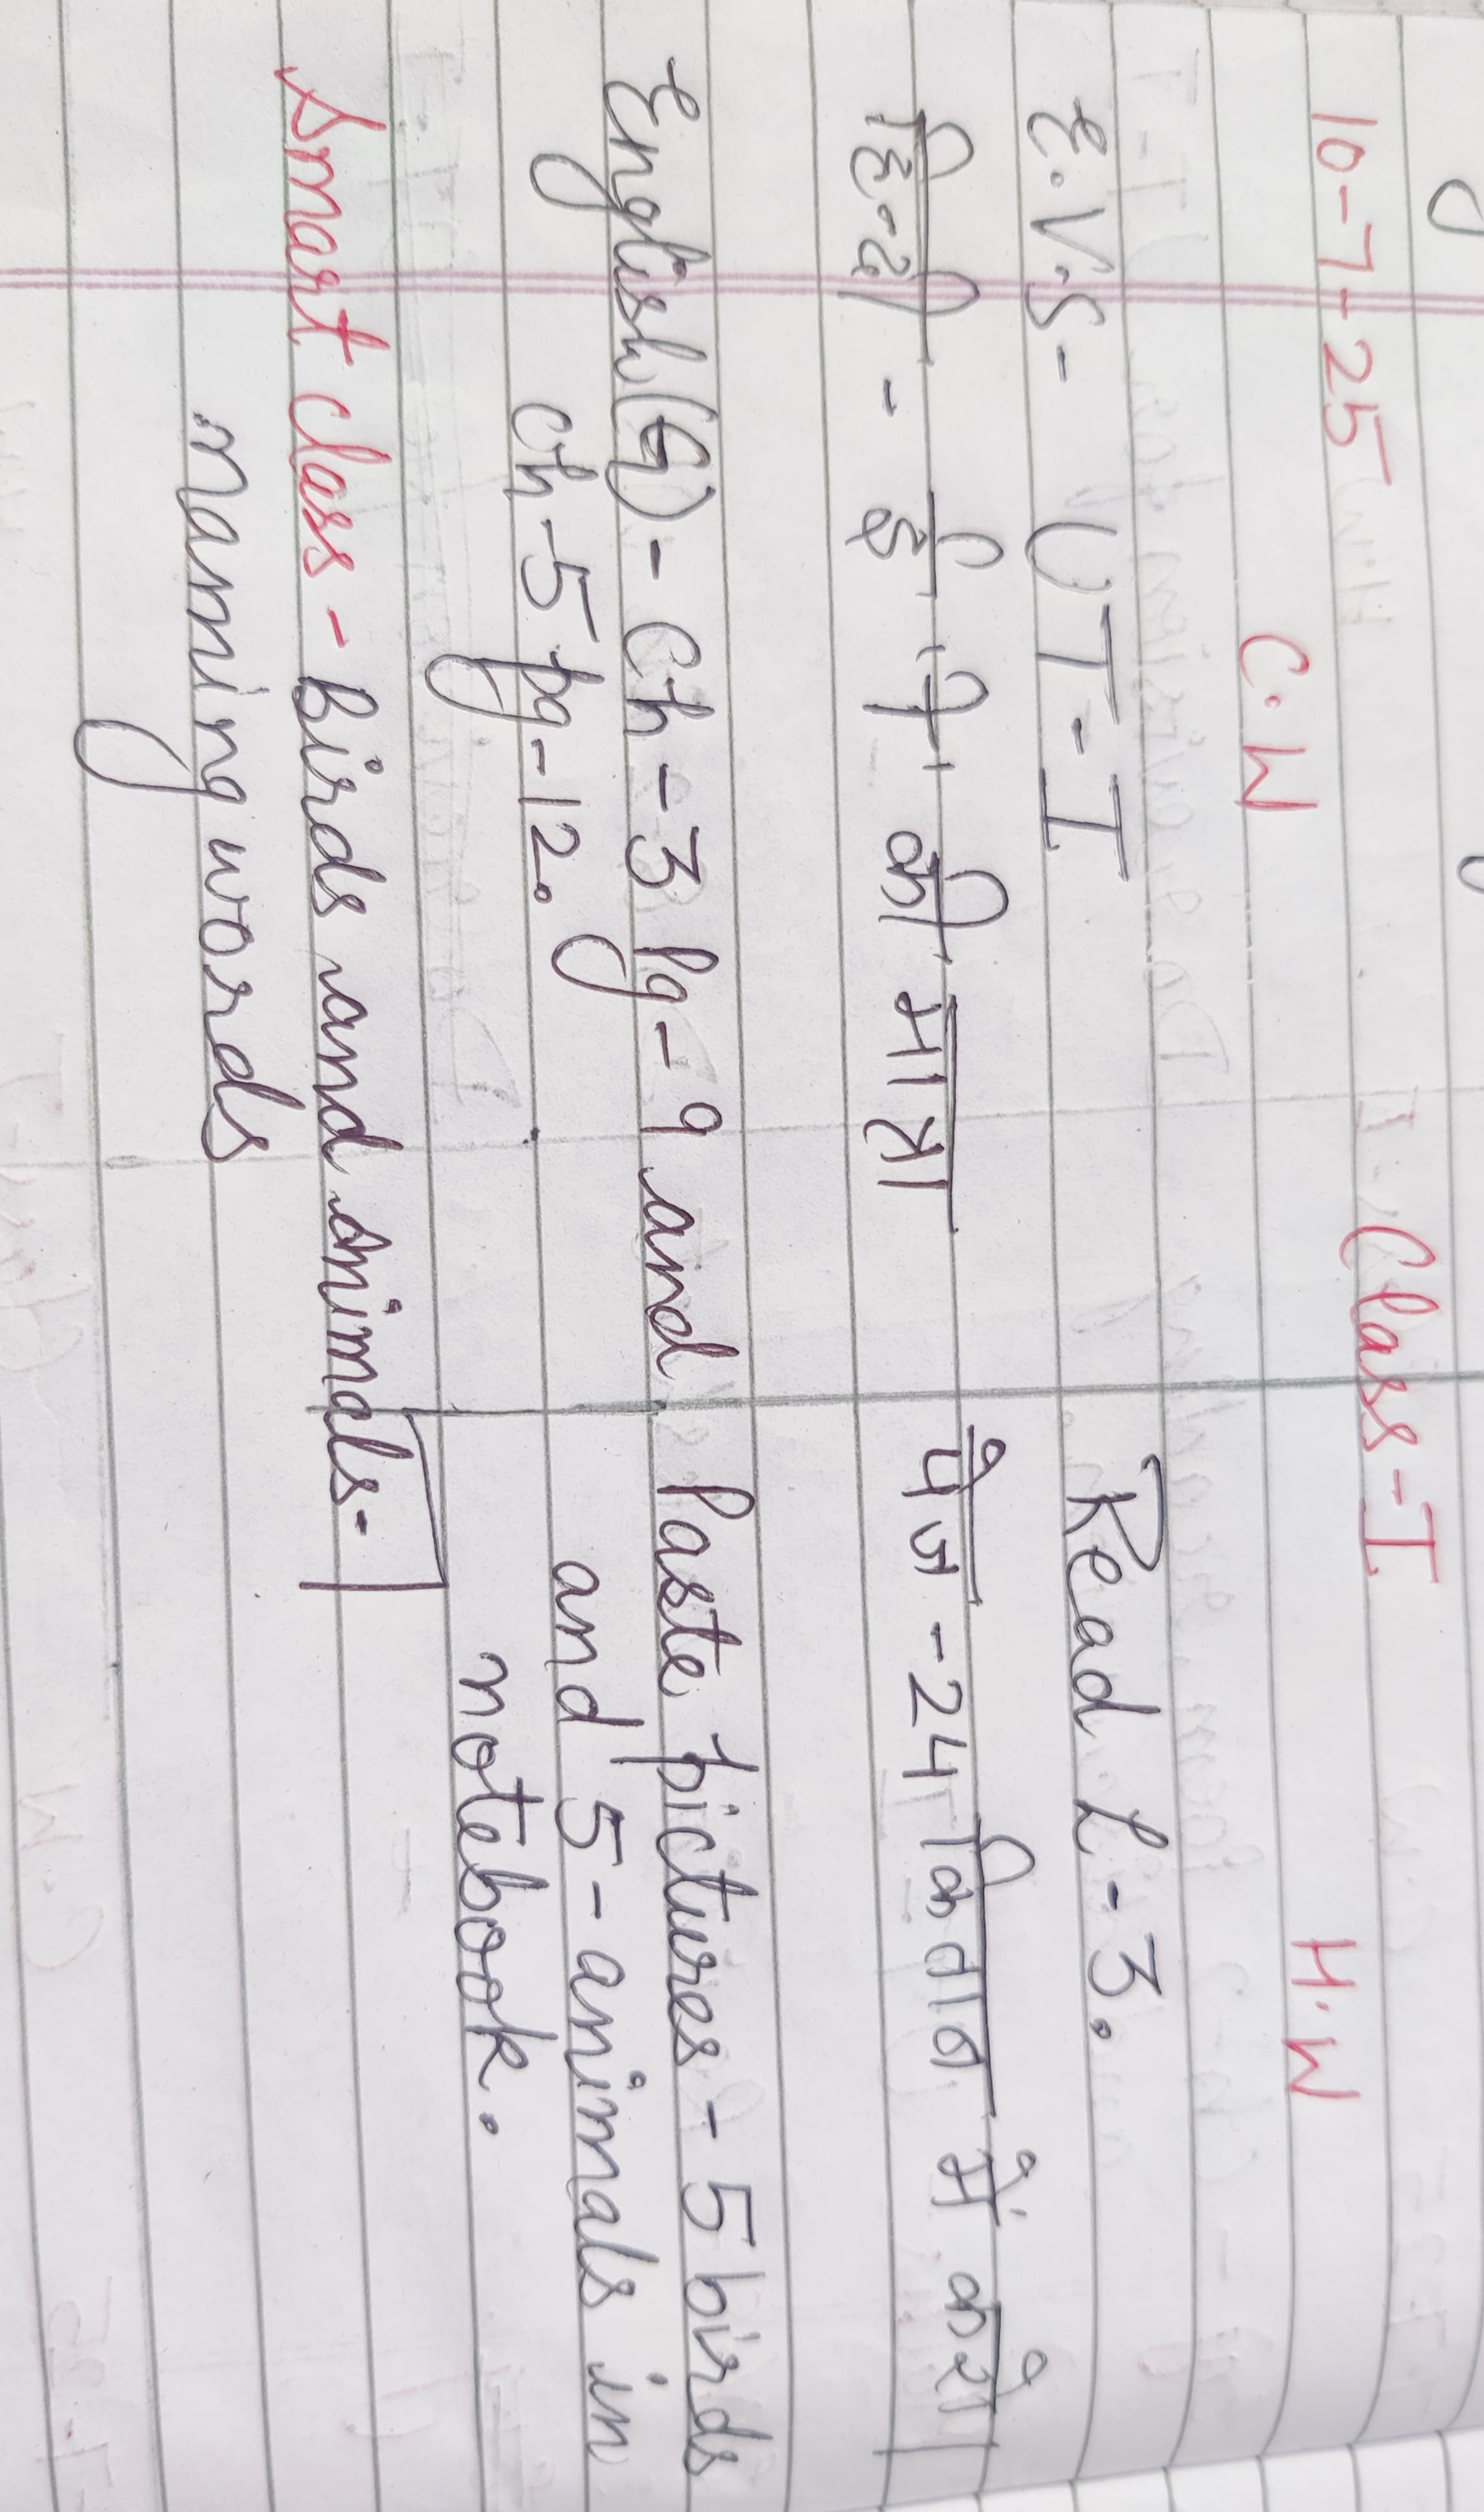 10-7-25 Class-I
C.W H.W
E.V.S - UT-I Read L-3.
हिन्दी - ई ' ी ' की मात्रा पेज -24 किताब में करो।
English(G) - Ch-3 Pg-9 and Paste pictures - 5 birds
Ch-5 pg-12. and 5-animals in
notebook.
Smart class - Birds and animals-
naming words